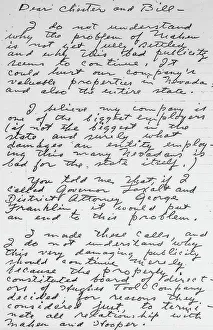 Dear Chester and Bill—
I do not understand
why the problem of Maheu
is not yet fully settled
and why this bad publicity
seems to continue. It
could hurt our company's
valuable properties in Nevada
and also the entire state.
I believe my company is
one of the biggest employers
(if not the biggest in the
state, and surely what
damages an entity employ
ing this many Nevadans is
bad for the state itself.)
You told me that if I
called Governor Laxalt and
District Attorney George
Franklin, it would put
an end to this problem.
I made these calls and
I do not understand why
this very damaging publicity
should continue merely
because the properly
constituted board of direct
ors of Hughes Tool Company
decided, for reason they
considered just, to termi-
nate all relationship with
Maheu and Hooper.